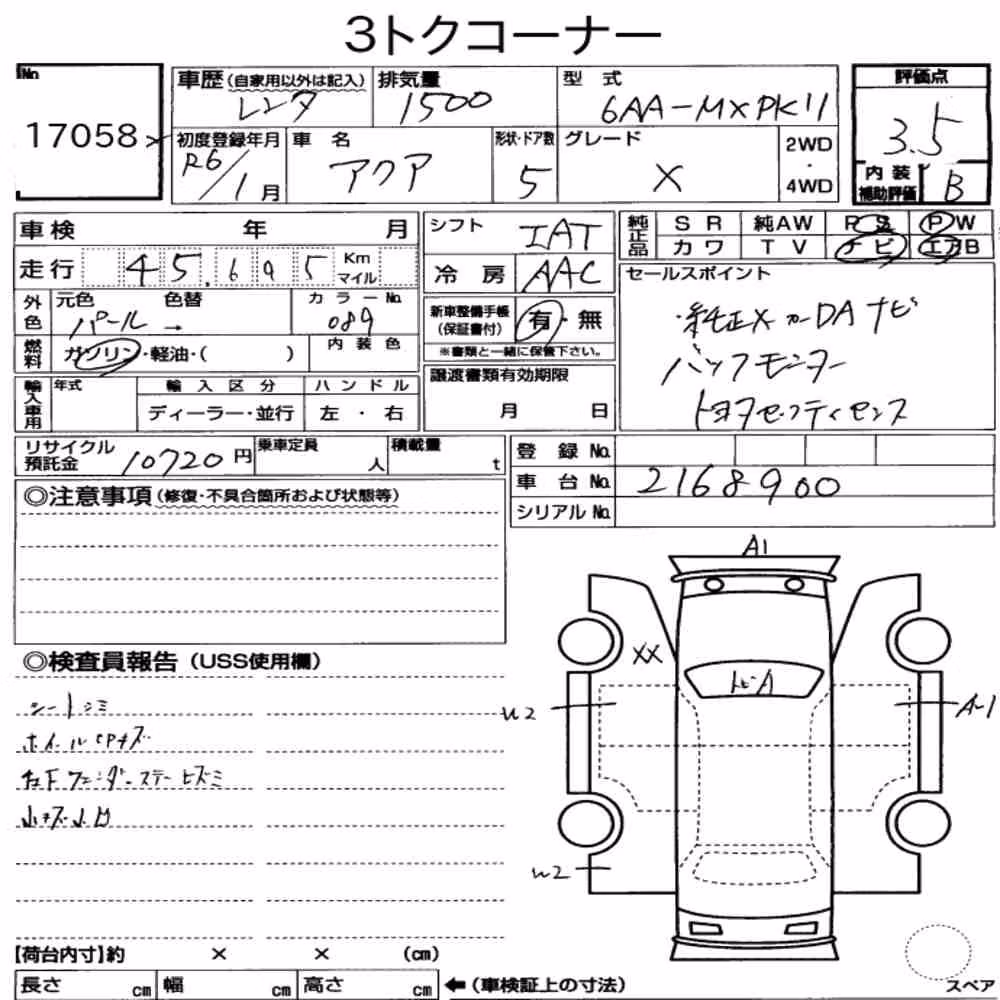 3トクコーナー
No. 17058
車歴 (自家用以外は記入) レンタ
排気量 1500
型式 6AA-MXPK11
評価点 3.5
内装補助評価 B
初度登録年月 R6/1月
車名 アクア
形状・ドア数 5
グレード X
2WD・4WD
車検 年 月
走行 45,695 Km マイル
シフト IAT
冷房 AAC
純正品 SR 純AW PS PW
カワ TV ナビ エアB
外色 元色 パール → 色替
カラーNo. 089
燃料 ガソリン・軽油・( )
内装色
新車整備手帳(保証書付) 有・無
※書類と一緒に保管下さい。
セールスポイント
・純正メーカーDAナビ
バックモニター
トヨタセーフティセンス
輸入車用 年式 輸入区分 ハンドル
ディーラー・並行 左・右
譲渡書類有効期限
月 日
リサイクル預託金 10720円
乗車定員 人
積載量 t
登録No.
車台No. 2168900
シリアルNo.
◎注意事項 (修復・不具合箇所および状態等)
◎検査員報告 (USS使用欄)
シートシミ
ホイールCPキズ
右Fフェンダーステーヒズミ
小キズ小凹
A1
XX
トビA
U2
A-1
U2
【荷台内寸】約 × × (cm)
長さ cm 幅 cm 高さ cm ←(車検証上の寸法)
スペア